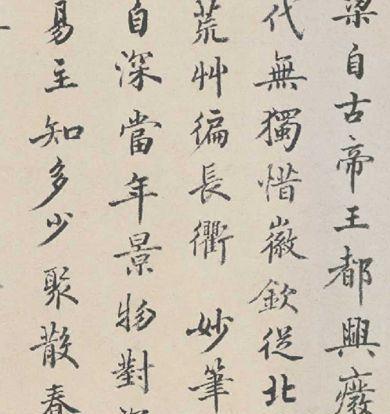 梁自古帝王都興廢
代無獨惜徽欽從北
荒艸徧長衢 妙筆
自深當年景物對
易主知多少聚散春